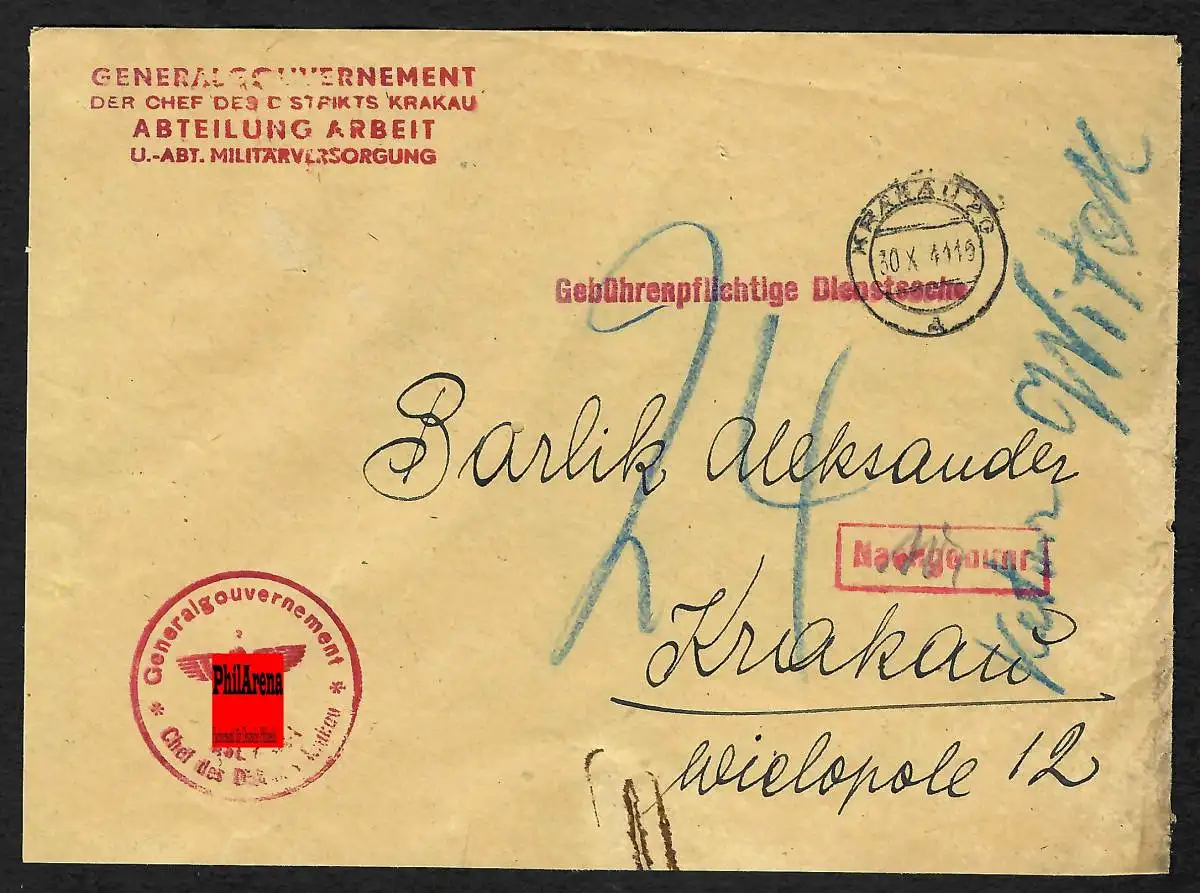 GENERALGOUVERNEMENT
DER CHEF DES DISTRIKTS KRAKAU
ABTEILUNG ARBEIT
U.-ABT. MILITÄRVERSORGUNG
KRAKAU 2
30 X 41 16
A
Gebührenpflichtige Dienstsache
24
Barlik Aleksander
Nachgebühr
Krakau
Wielopole 12
Generalgouvernement
PhilArena
Chef des